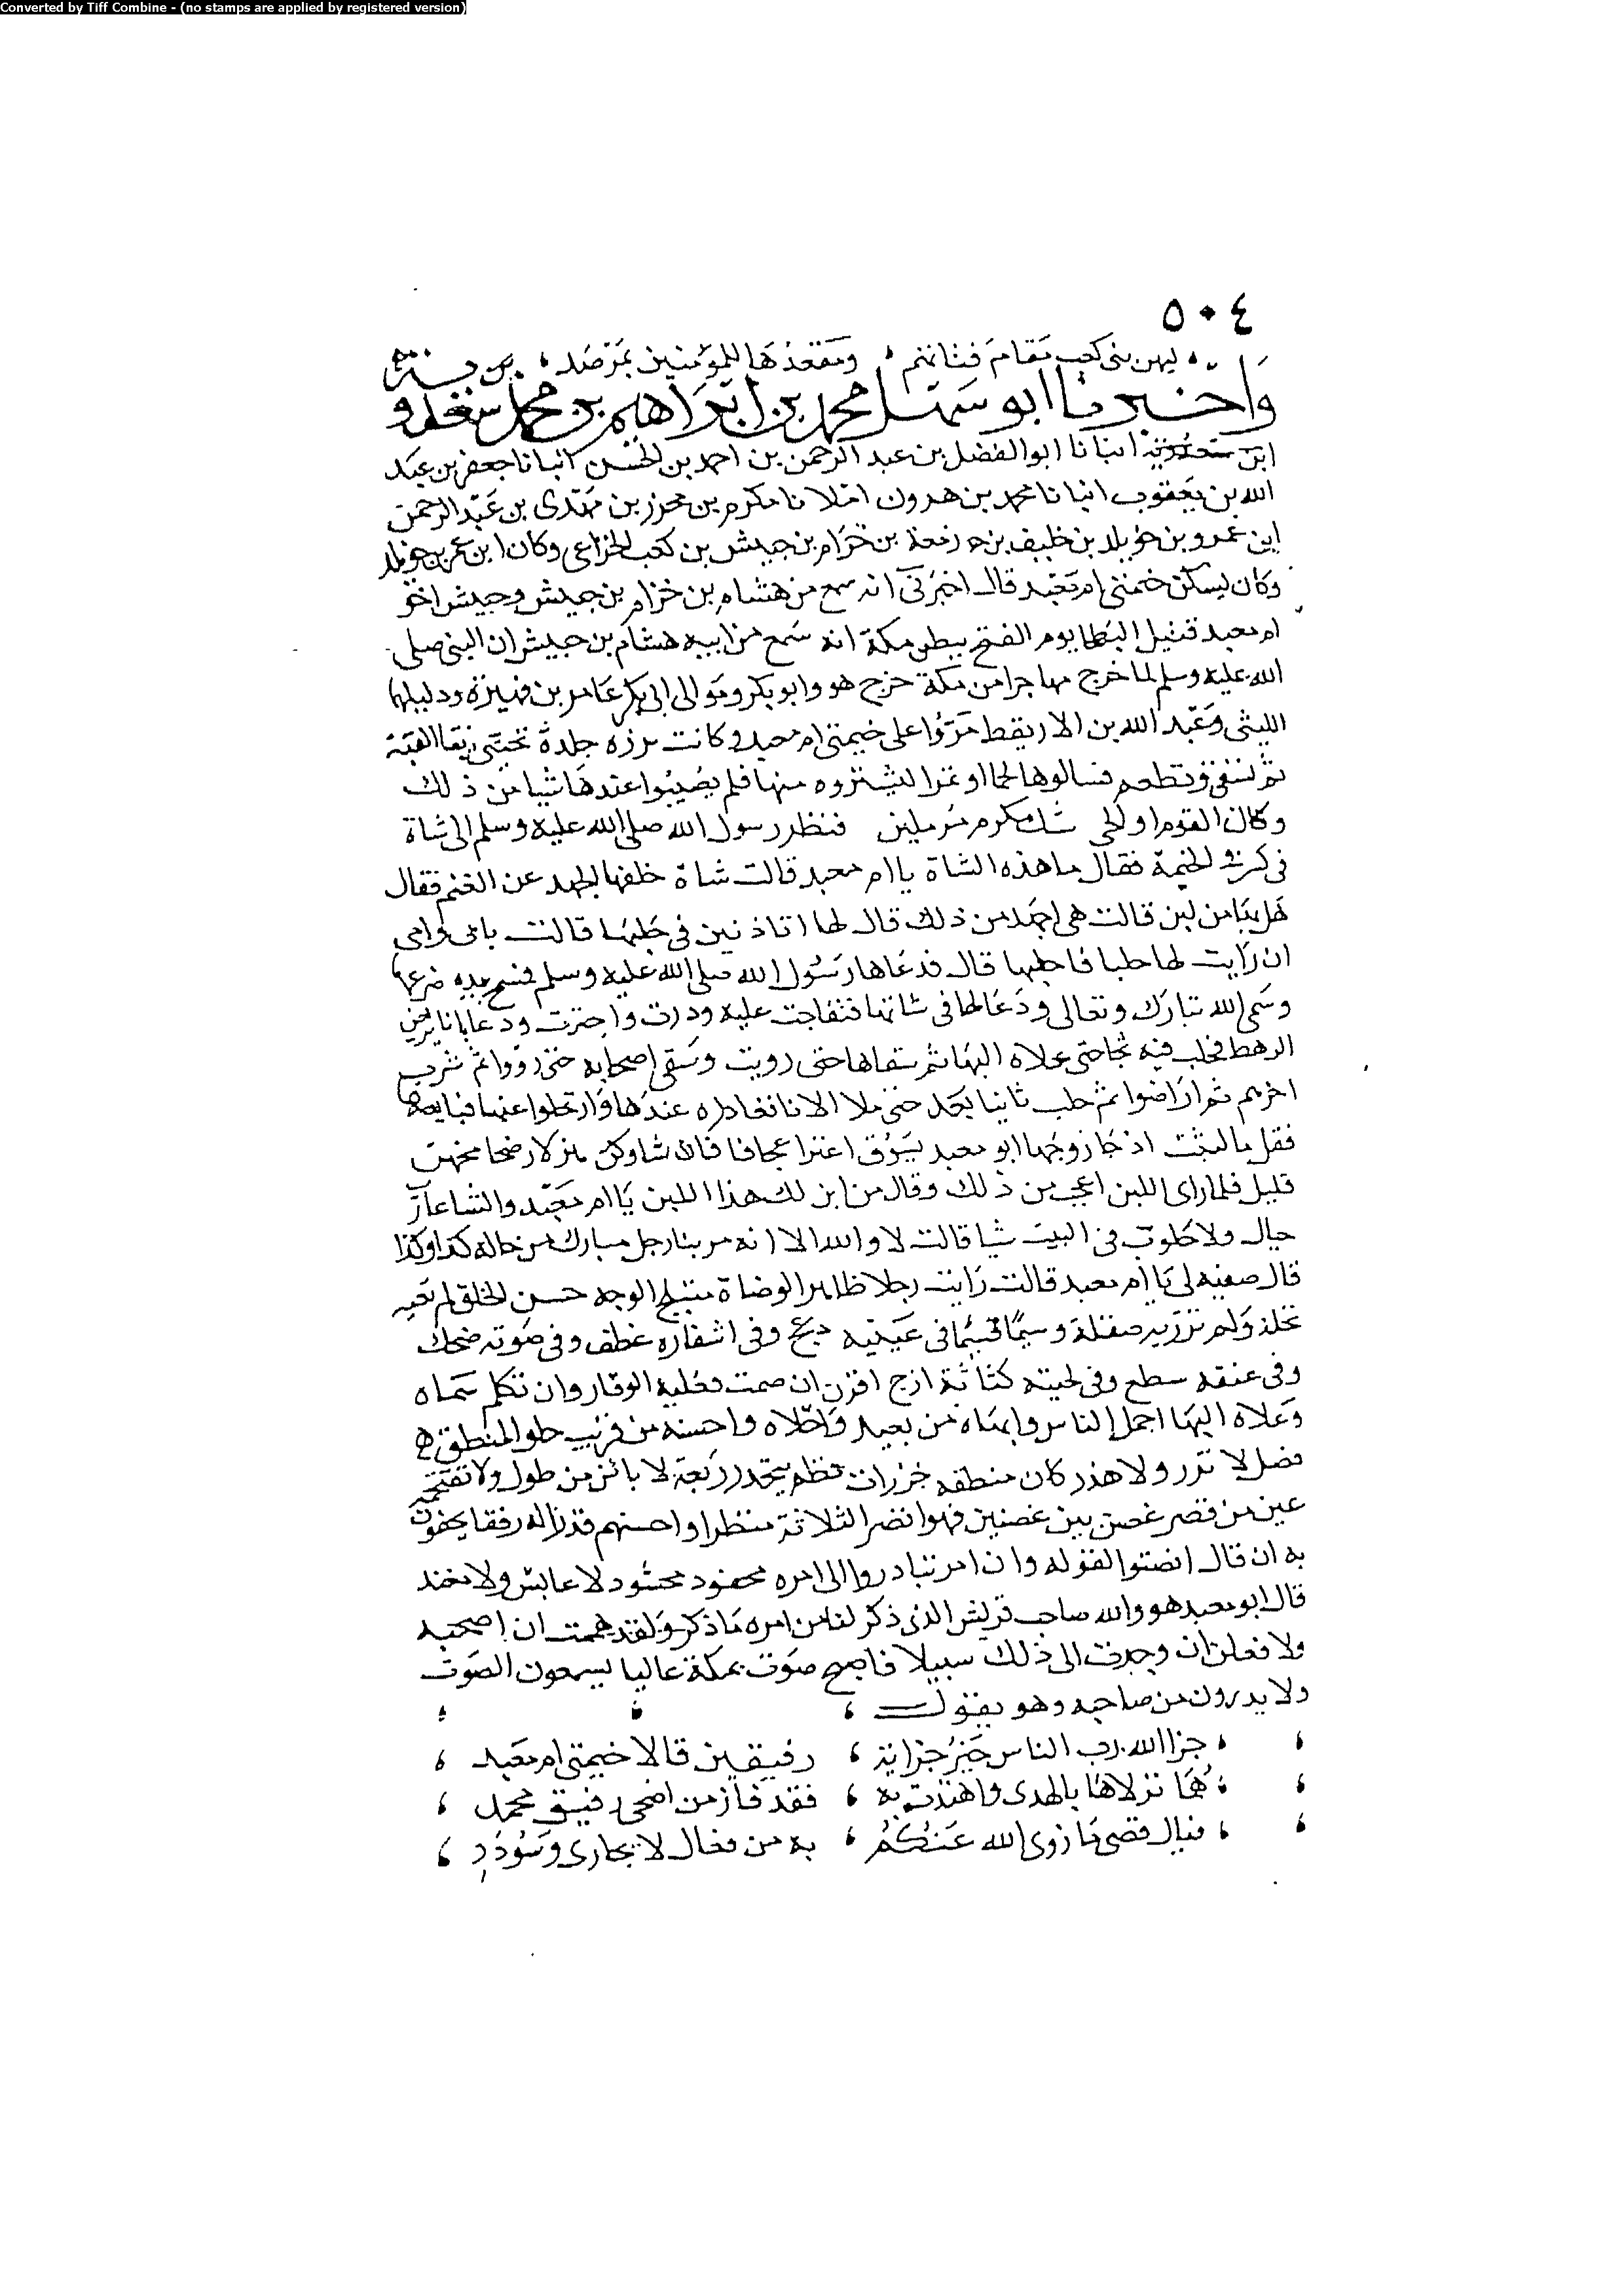 Converted by Tiff Combine - (no stamps are applied by registered version)
٥٠٤
ليهن بنى كعب مقام فتاتهم ومقعدها للمؤمنين بمرصد
واخبرنا ابو سهل محمد بن ابراهيم بن محمد بن
ابن انبانا ابو الفضل بن عبد الرحمن بن احمد بن الحسن انبانا جعفر بن عبد
الله بن يعقوب انبانا محمد بن هرون املا نا مكرم بن محرز بن مهدى بن عبد الرحمن
ابن عمرو بن خويلد بن خليف بن بن حزام بن حبيش بن كعب الخزاعى وكان
وكان يسكن خيمتى ام معبد قال اخبرنى انه سمع من هشام بن حزام بن حبيش وحبيش اخو
ام معبد قتيل البطحا يوم الفتح ببطن مكة انه سمع من ابيه هشام بن حبيش ان النبى صلى
الله عليه وسلم لما خرج مهاجرا من مكة خرج هو وابو بكر ومولى ابى بكر عامر بن فهيرة ودليلهما
الليثى وعبد الله بن الاريقط مروا على خيمتى ام معبد وكانت برزه جلدة تحتبى بفنا القبة
ثم تسقى وتطعم فسالوها لحما او تمرا ليشتروه منها فلم يصيبوا عندها شيا من ذلك
وكان القوم شك مكرم مرملين فنظر رسول الله صلى الله عليه وسلم الى شاة
فى كسر الخيمة فقال ما هذه الشاة يا ام معبد قالت شاة خلفها الجهد عن الغنم فقال
هل بها من لبن قالت هى اجهد من ذلك قال لها اتاذنين فى حلبها قالت بابى وامى
ان رايت لها حلبا فاحلبها قال فدعاها رسول الله صلى الله عليه وسلم فمسح بيده ضرعها
وسمى الله تبارك وتعالى ودعا لها فى شاتها فتفاجت عليه ودرت واجترت ودعا بانا يربض
الرهط فحلب فيه ثجا حتى علاه البها ثم سقاها حتى رويت وسقى اصحابه حتى رووا ثم شرب
اخرهم ثم اراضوا ثم حلب ثانيا بعد حتى ملا الانا فغادره عندها وارتحلوا عنها فبايعها
فقل ما لبثت اذ جا زوجها ابو معبد يسوق اعنزا عجافا هزلا ضحا مخهن
قليل فلما راى اللبن اعجب من ذلك وقال من اين لك هذا اللبن يا ام معبد والشا عازب
حيال ولا حلوب فى البيت شيا قالت لا والله الا انه مر بنا رجل مبارك من حاله كذا وكذا
قال صفيه لى يا ام معبد قالت رايت رجلا ظاهر الوضاة متبلج الوجه حسن الخلق لم تعبه
نحلة ولم تزريه صقلة وسيما قسيما فى عينيه دعج وفى اشفاره غطف وفى صوته ضحك
وفى عنقه سطع وفى لحيته كثاثة ازج اقرن ان صمت فعليه الوقار وان تكلم سماه
وعلاه البها اجمل الناس وابهاه من بعيد واحلاه واحسنه من قريب حلو المنطق
فصل لا نزر ولا هذر كان منطقه خرزات نظم يتحدر ربعة لا بائن من طول ولا تقتحمه
عين من قصر غصن بين غصنين فهو انضر الثلاثة منظرا واحسنهم قدرا له رفقا يحفون
به ان قال انصتوا لقوله وان امر تبادروا الى امره محفود محشود لا عابس ولا مفند
قال ابو معبد هو والله صاحب قريش الذى ذكر لنا من امره ما ذكر ولقد هممت ان اصحبه
ولا فعلن ان وجدت الى ذلك سبيلا فاصبح صوت بمكة عاليا يسمعون الصوت
ولا يدرون من صاحبه وهو يقول
جزا الله رب الناس خير جزايه رفيقين قالا خيمتى ام معبد
هما نزلاها بالهدى واهتدت به فقد فاز من اضحى رفيق محمد
فيال قصى ما زوى الله عنكم به من فعال لا يجارى وسودد